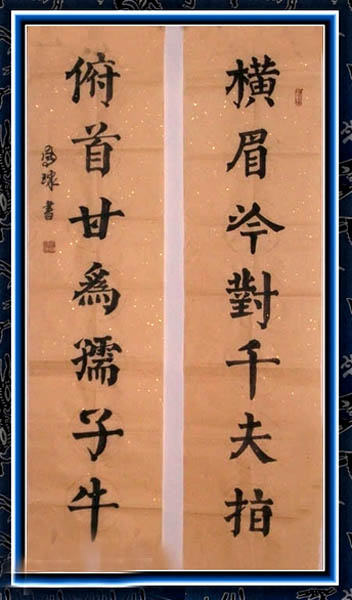 橫眉冷對千夫指
俯首甘爲孺子牛
球書